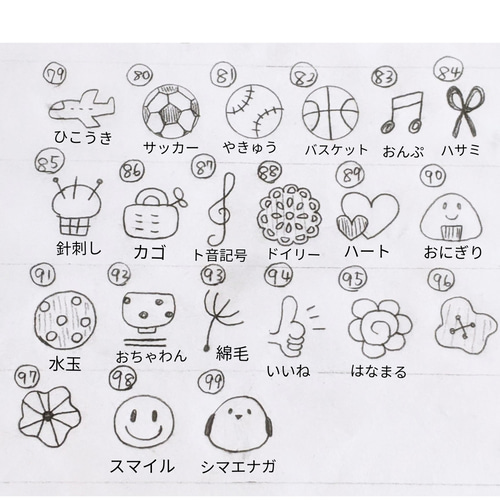 79 80 81 82 83 84
ひこうき サッカー やきゅう バスケット おんぷ ハサミ
85 86 87 88 89 90
針刺し カゴ ト音記号 ドイリー ハート おにぎり
91 92 93 94 95 96
水玉 おちゃわん 綿毛 いいね はなまる
97 98 99
スマイル シマエナガ